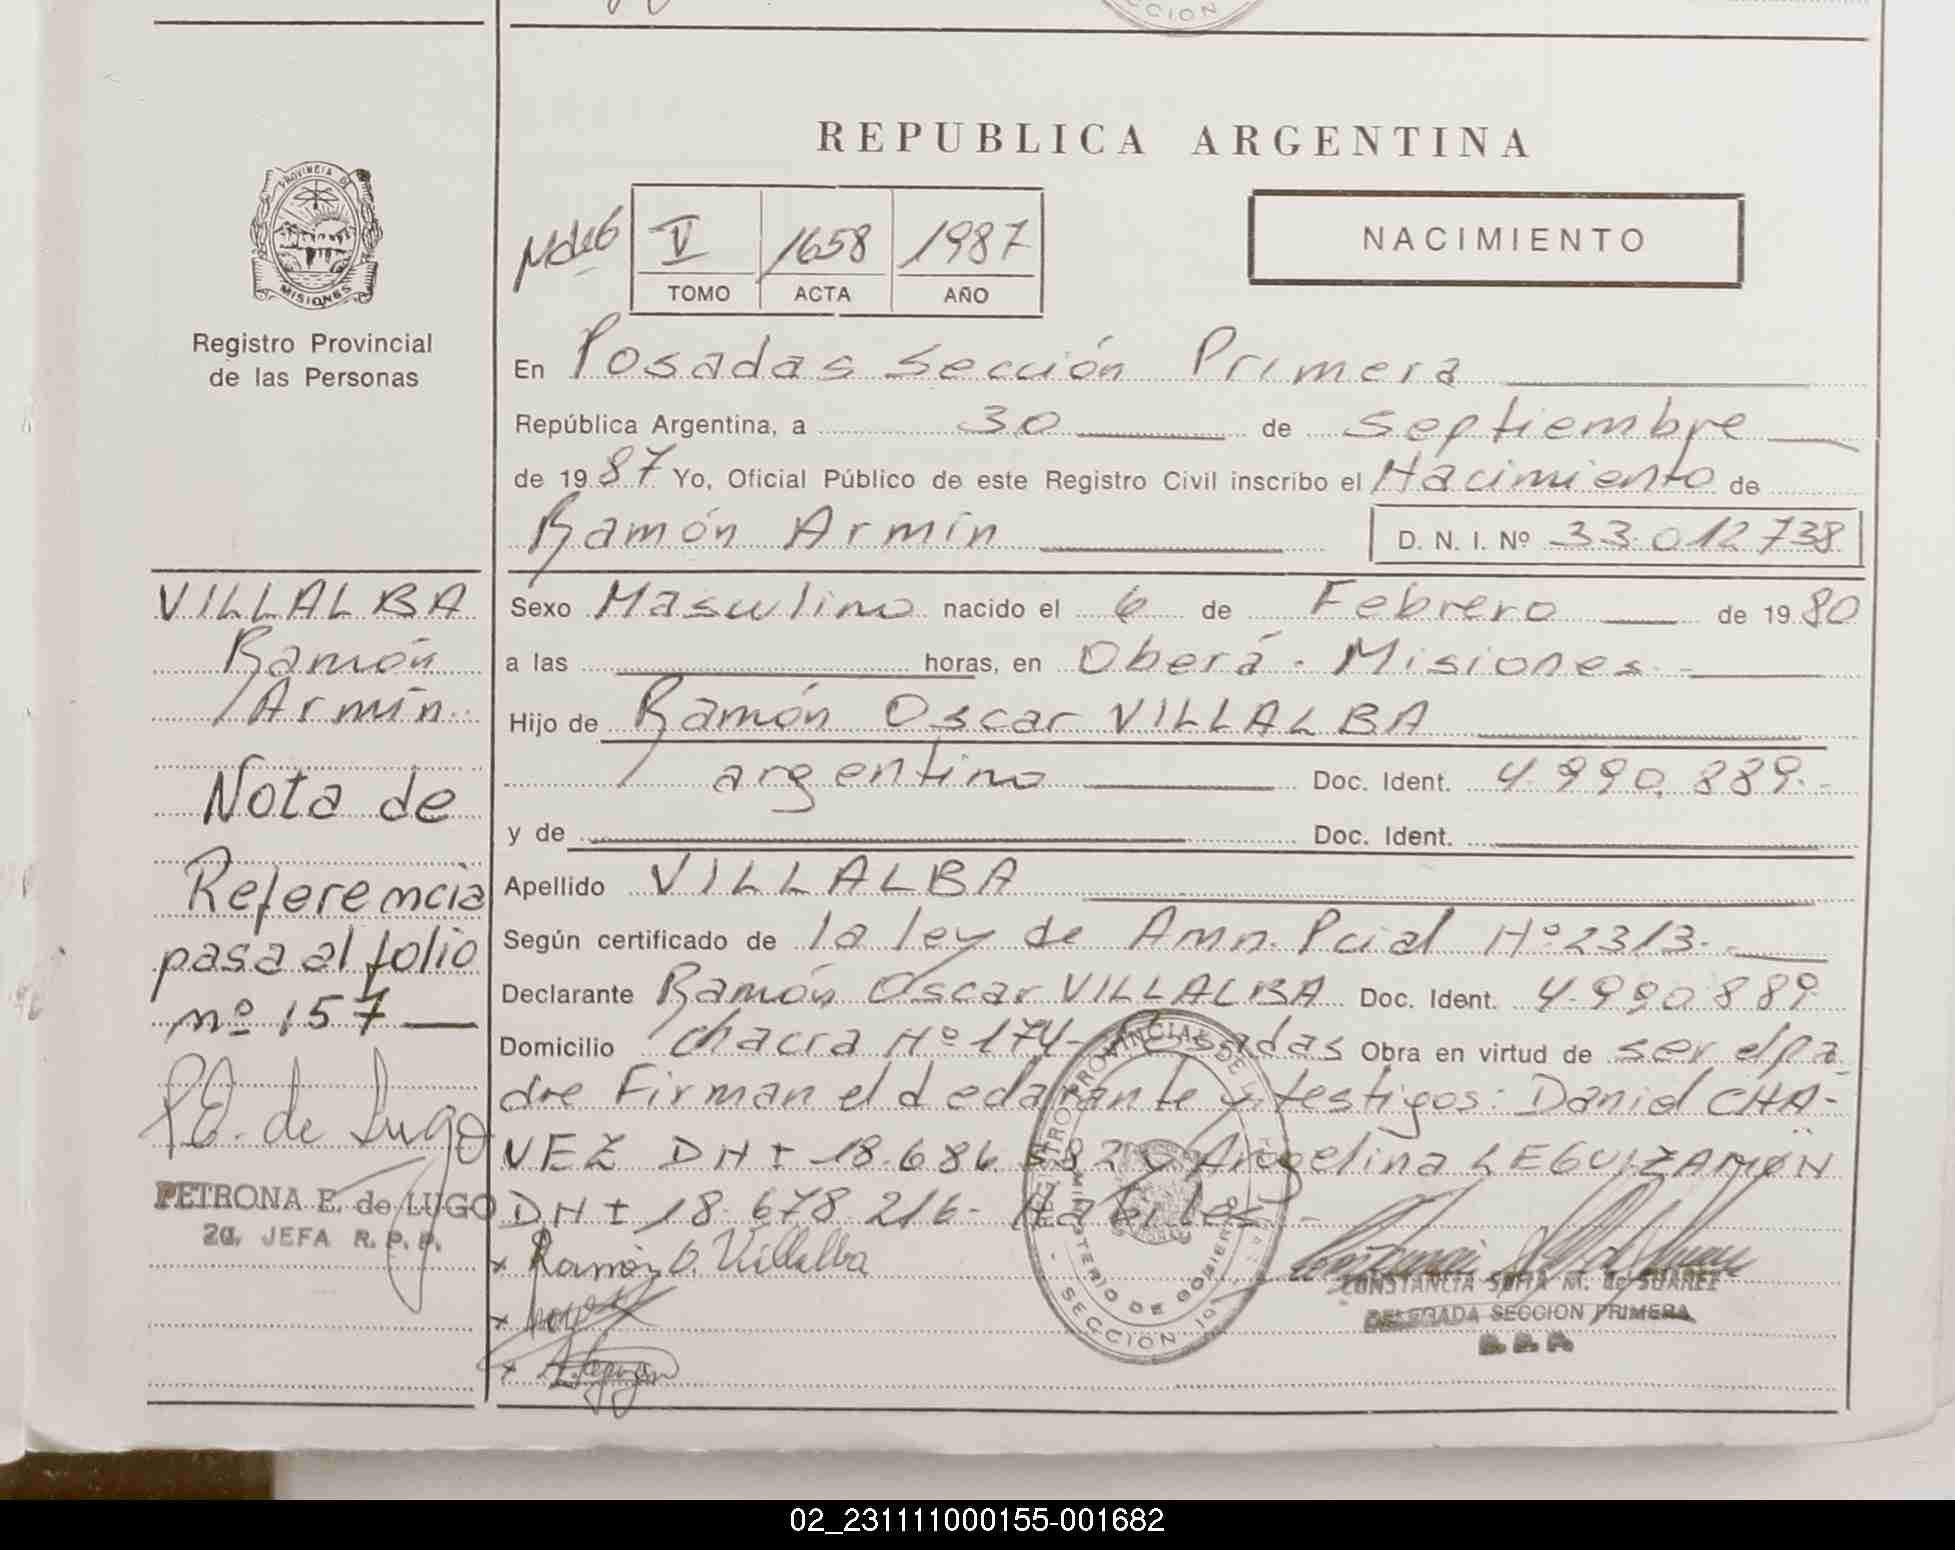 REPUBLICA ARGENTINA
PROVINCIA DE
MISIONES
Registro Provincial
de las Personas
V 1658 1987
TOMO ACTA AÑO
NACIMIENTO
En Posadas Sección Primera
República Argentina, a 30 de septiembre
de 1987 Yo, Oficial Público de este Registro Civil inscribo el Nacimiento de
Ramón Armín D. N. I. Nº 33.012.738
VILLALBA
Ramón
Armín
Nota de
Referencia
pasa al folio
nº 157
P.E. de Lugo
PETRONA E. de LUGO
2a. JEFA R. P. P.
Sexo Masculino nacido el 6 de Febrero de 1980
a las horas, en Oberá - Misiones
Hijo de Ramón Oscar VILLALBA
argentino Doc. Ident. 4.990.889.-
y de Doc. Ident.
Apellido VILLALBA
Según certificado de la ley de Amn. Pcial Nº 2313.
Declarante Ramón Oscar VILLALBA Doc. Ident. 4.990.889
Domicilio Chacra Nº 174- Posadas Obra en virtud de ser el pa
dre Firman el declarante y testigos: Daniel CHA-
VEZ DNI 18.686.582 y Angelina LEGUIZAMÓN
DNI 18.678.216- Hábiles -
x Ramón O. Villalba
REGISTRO PROVINCIAL DE
MINISTERIO DE GOBIERNO
- SECCION 1º
CONSTANCIA SOFIA M. de SUAREZ
DELEGADA SECCION PRIMERA
02_231111000155-001682